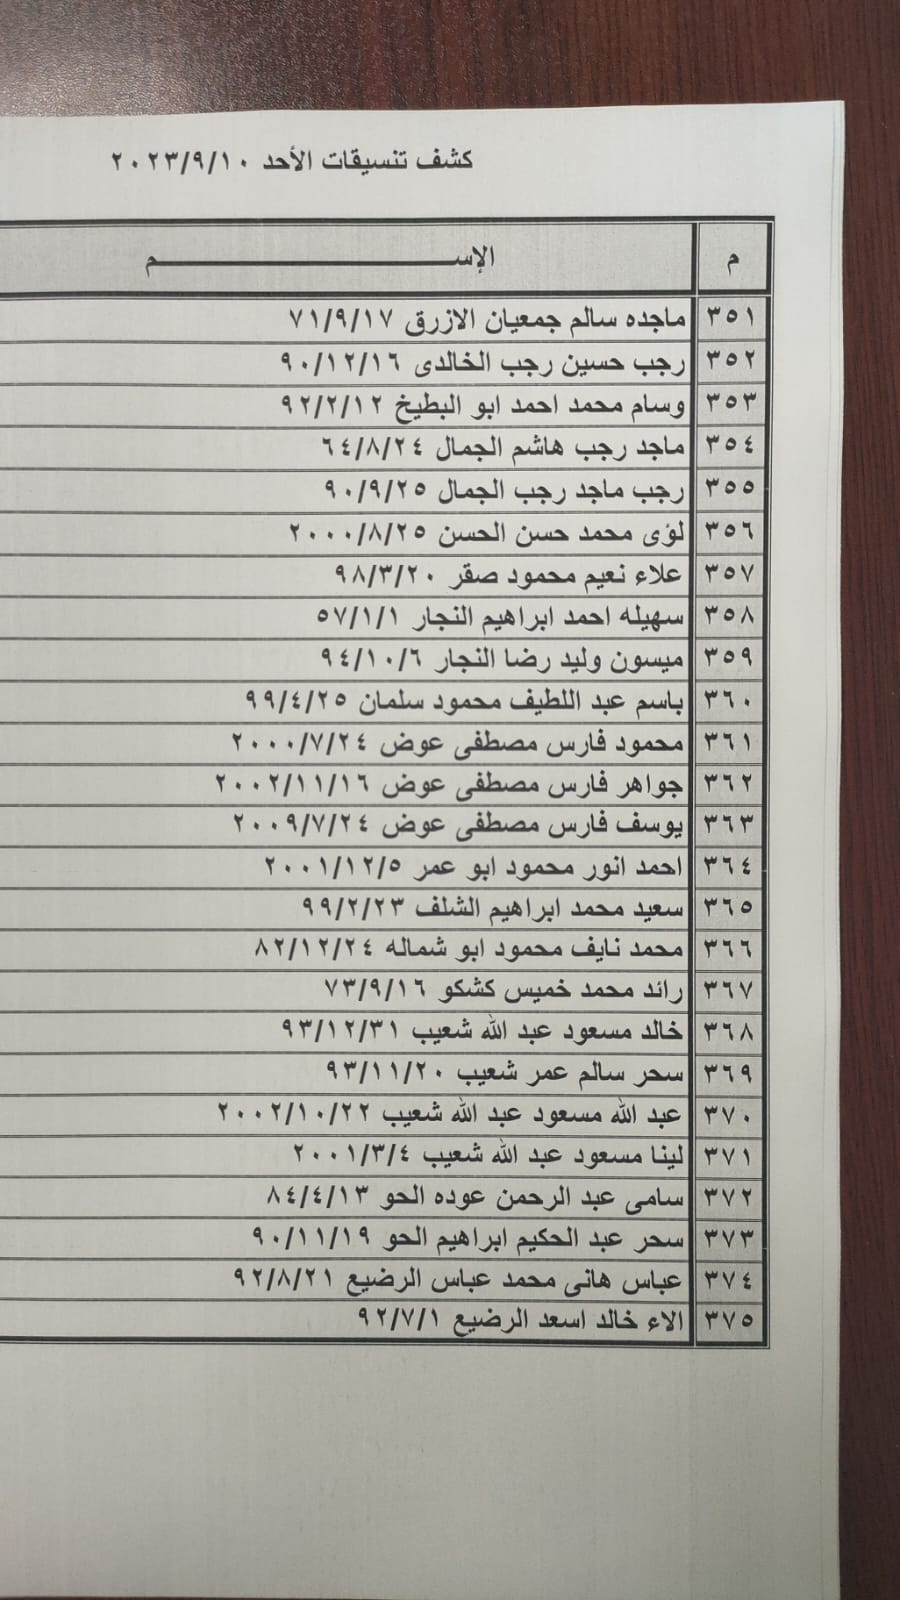 كشف تنسيقات الأحد ٢٠٢٣/٩/١٠
م الإســــم
٣٥١ ماجده سالم جمعيان الازرق ٧١/٩/١٧
٣٥٢ رجب حسين رجب الخالدى ٩٠/١٢/١٦
٣٥٣ وسام محمد احمد ابو البطيخ ٩٢/٢/١٢
٣٥٤ ماجد رجب هاشم الجمال ٦٤/٨/٢٤
٣٥٥ رجب ماجد رجب الجمال ٩٠/٩/٢٥
٣٥٦ لؤى محمد حسن الحسن ٢٠٠٠/٨/٢٥
٣٥٧ علاء نعيم محمود صقر ٩٨/٣/٢٠
٣٥٨ سهيله احمد ابراهيم النجار ٥٧/١/١
٣٥٩ ميسون وليد رضا النجار ٩٤/١٠/٦
٣٦٠ باسم عبد اللطيف محمود سلمان ٩٩/٤/٢٥
٣٦١ محمود فارس مصطفى عوض ٢٠٠٠/٧/٢٤
٣٦٢ جواهر فارس مصطفى عوض ٢٠٠٢/١١/١٦
٣٦٣ يوسف فارس مصطفى عوض ٢٠٠٩/٧/٢٤
٣٦٤ احمد انور محمود ابو عمر ٢٠٠١/١٢/٥
٣٦٥ سعيد محمد ابراهيم الشلف ٩٩/٢/٢٣
٣٦٦ محمد نايف محمود ابو شماله ٨٢/١٢/٢٤
٣٦٧ رائد محمد خميس كشكو ٧٣/٩/١٦
٣٦٨ خالد مسعود عبد الله شعيب ٩٣/١٢/٣١
٣٦٩ سحر سالم عمر شعيب ٩٣/١١/٢٠
٣٧٠ عبد الله مسعود عبد الله شعيب ٢٠٠٢/١٠/٢٢
٣٧١ لينا مسعود عبد الله شعيب ٢٠٠١/٣/٤
٣٧٢ سامى عبد الرحمن عوده الحو ٨٤/٤/١٣
٣٧٣ سحر عبد الحكيم ابراهيم الحو ٩٠/١١/١٩
٣٧٤ عباس هانى محمد عباس الرضيع ٩٢/٨/٢١
٣٧٥ الاء خالد اسعد الرضيع ٩٢/٧/١